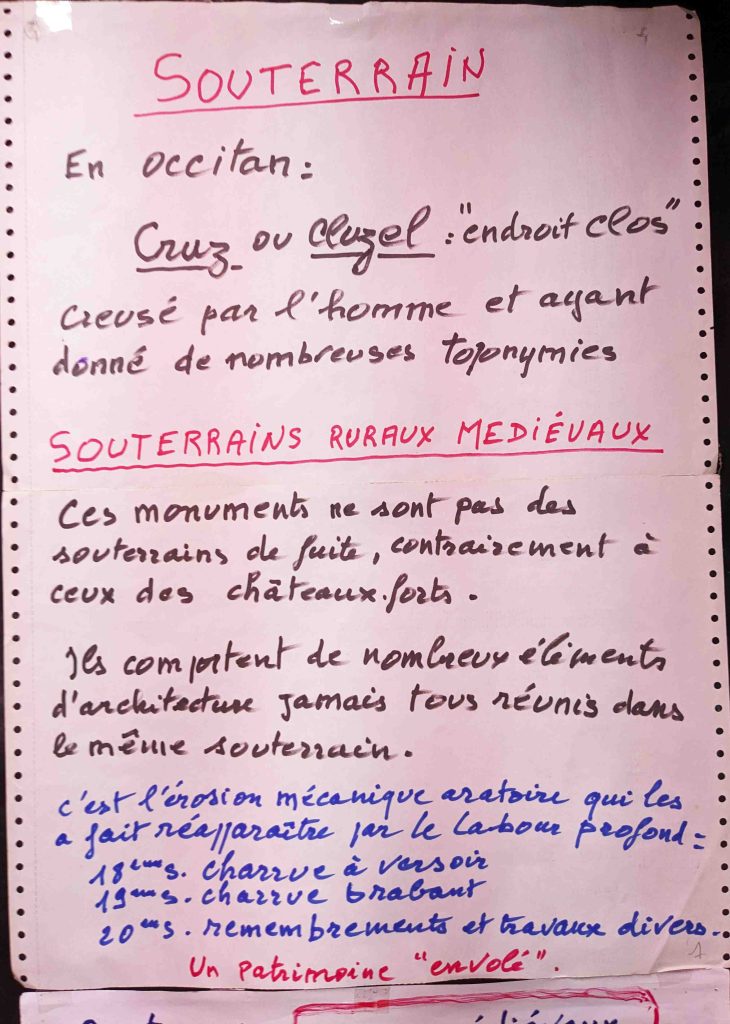 SOUTERRAIN
En occitan :
Cruz ou Cluzel : "endroit clos"
creusé par l'homme et ayant
donné de nombreuses toponymies
SOUTERRAINS RURAUX MEDIÉVAUX
Ces monuments ne sont pas des
souterrains de fuite, contrairement à
ceux des châteaux-forts.
Ils comportent de nombreux éléments
d'architecture jamais tous réunis dans
le même souterrain.
c'est l'érosion mécanique aratoire qui les
a fait réapparaître par le labour profond :
18ème s. charrue à versoir
19ème s. charrue brabant
20ème s. remembrements et travaux divers.
Un patrimoine "envolé".
1